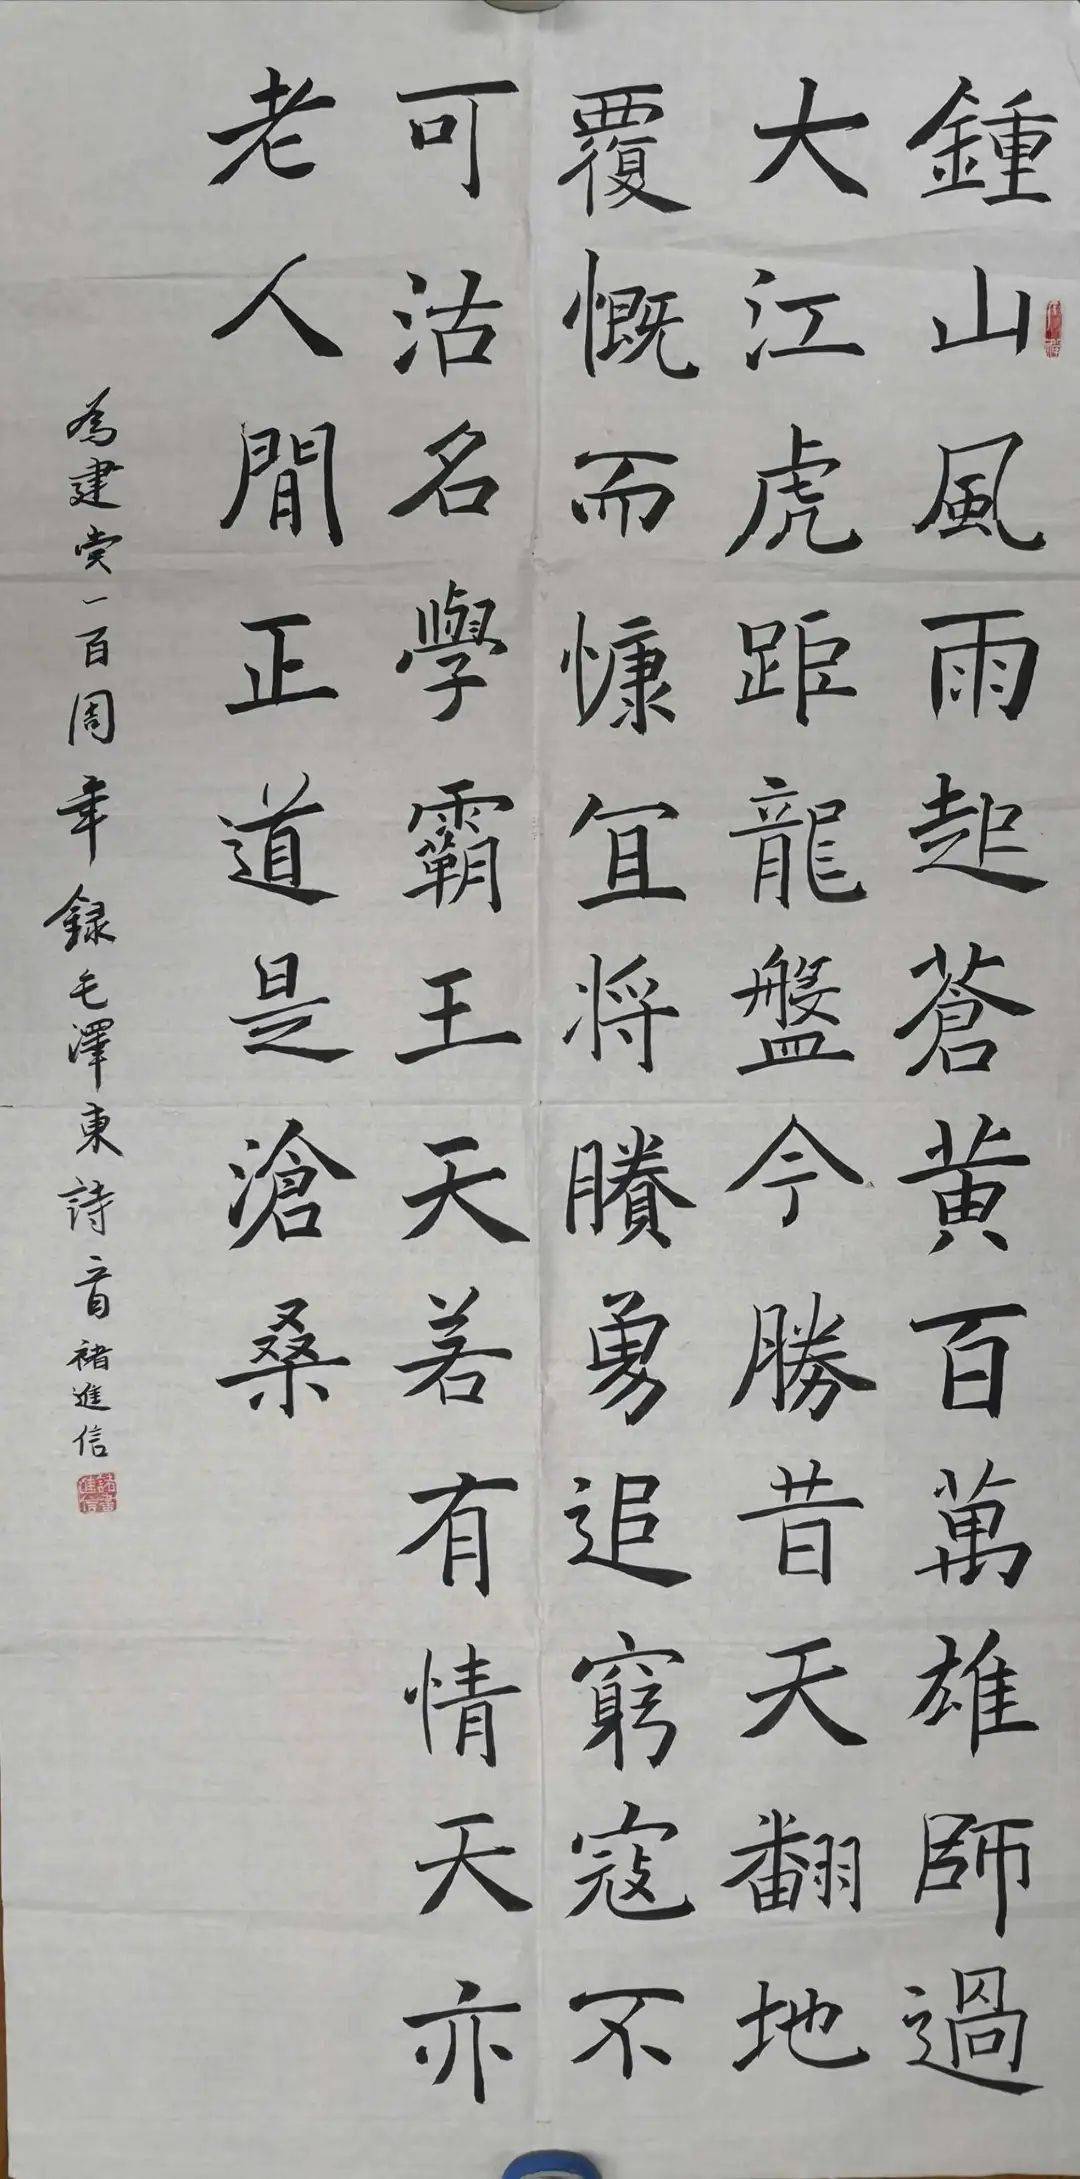 鍾山風雨起蒼黄百萬雄師過
大江虎距龍盤今勝昔天翻地
覆慨而慷宜將賸勇追窮寇不
可沽名學霸王天若有情天亦
老人間正道是滄桑
為建党一百周年錄毛澤東詩一首褚進信